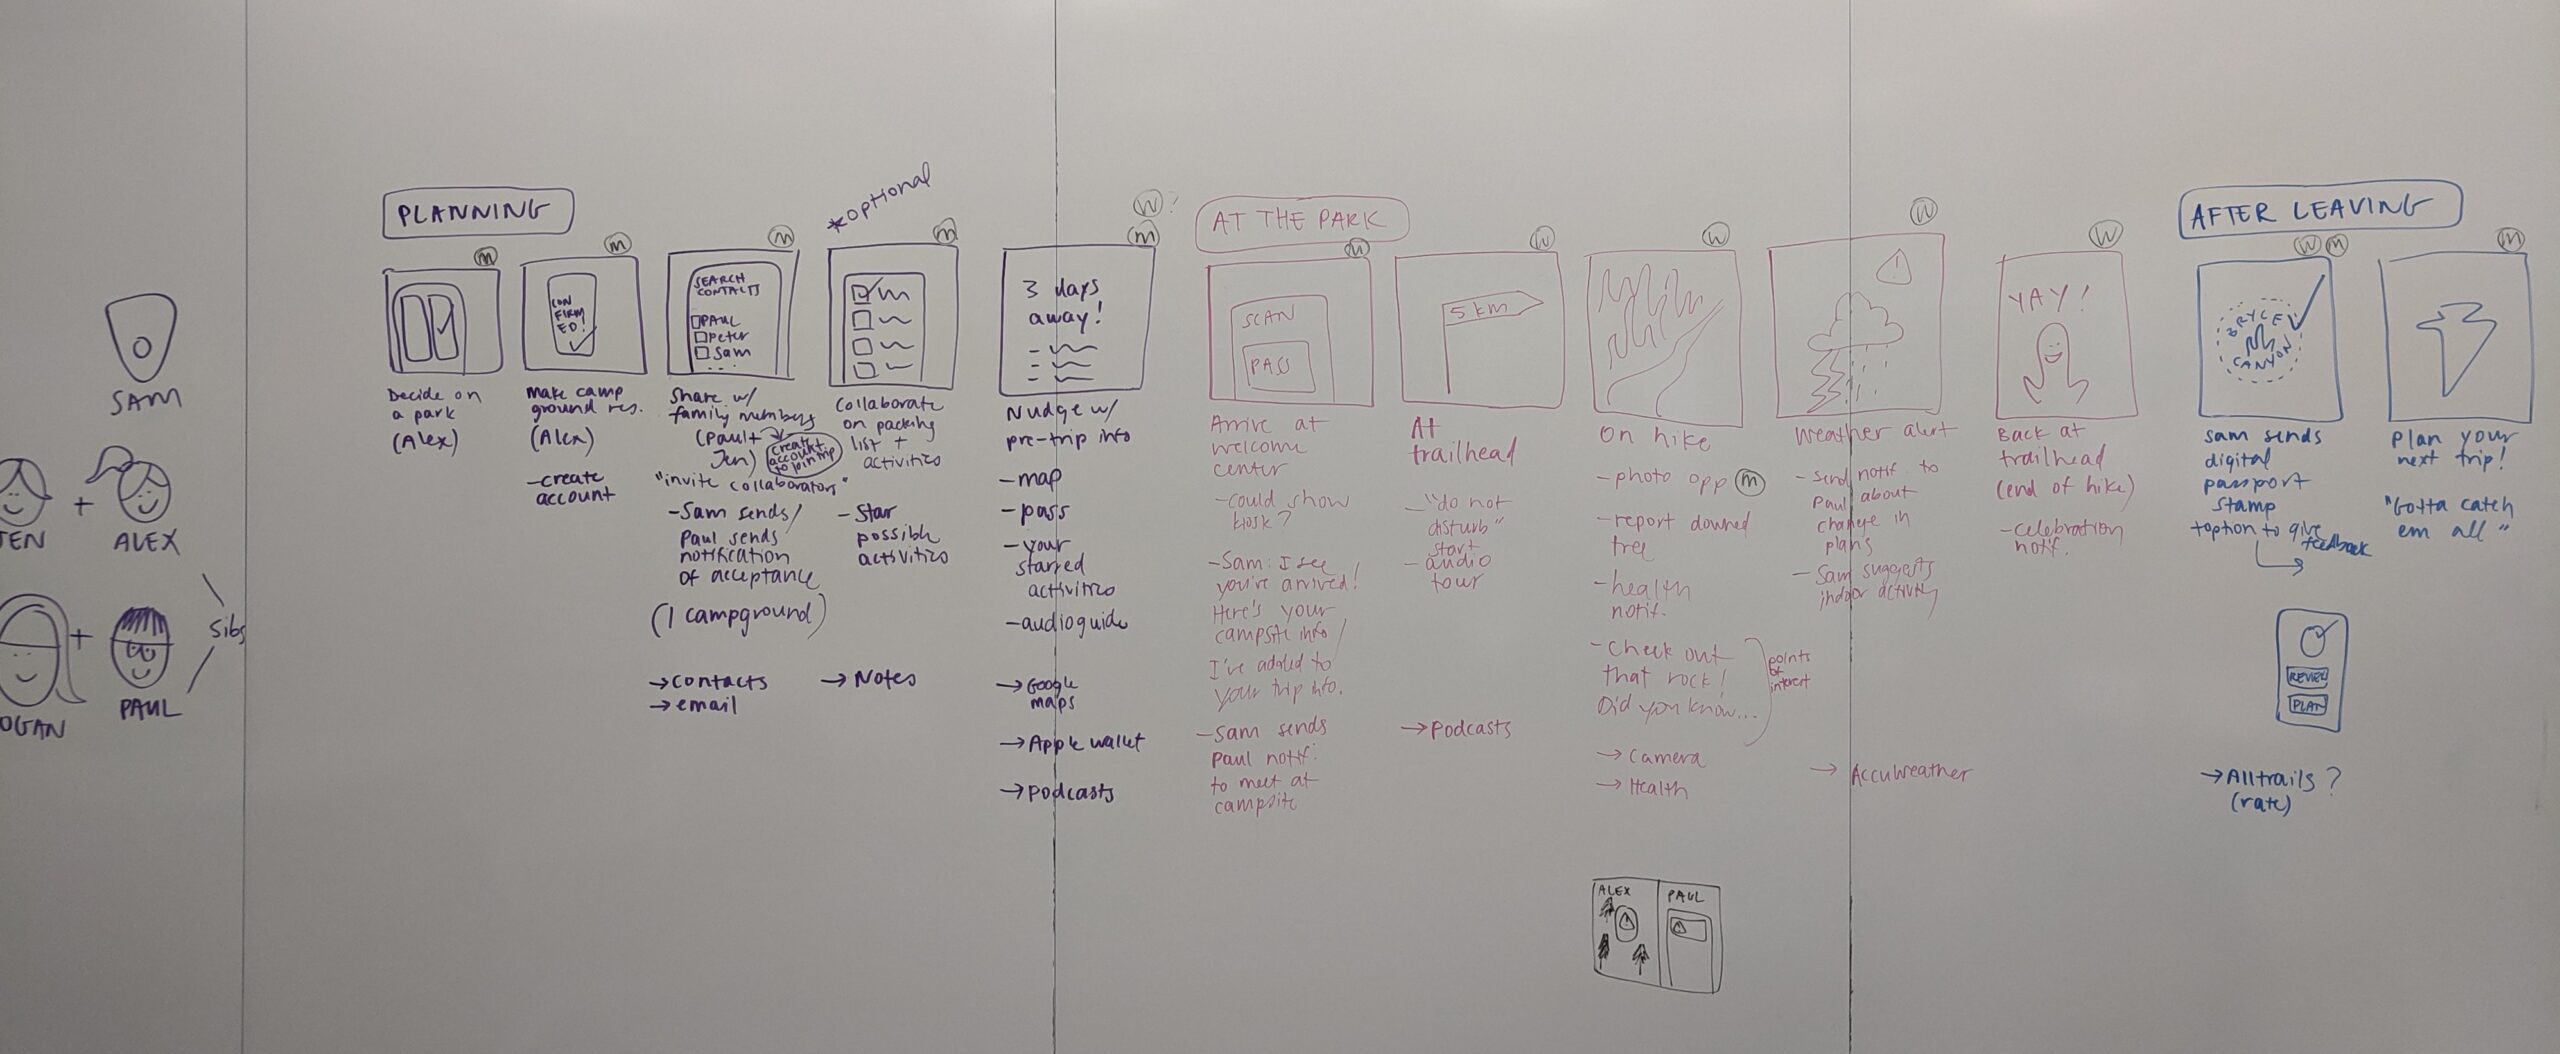 SAM
+
JEN
ALEX
OGAN
+
PAUL
Sibs
PLANNING
m
Decide on
a park
(Alex)
m
CON
FIRM
ED!
Make camp
ground res.
(Alex)
-create
account
m
SEARCH
CONTACTS
PAUL
Peter
Sam
...
Share w/
family members
(Paul +
Jen)
create
account
to join trip
"invite collaborators"
-Sam sends/
Paul sends
notification
of acceptance
(1 campground)
→contacts
→email
*optional
m
Collaborate
on packing
list +
activities
-Star
possible
activities
→Notes
W?
m
3 days
away!
Nudge w/
pre-trip info
-map
-pass
-your
starred
activities
-audioguide
→Google
maps
→Apple wallet
→Podcasts
AT THE PARK
m
SCAN
PASS
Arrive at
welcome
center
-could show
kiosk?
-Sam: I see
you've arrived!
Here's your
campsite info/
I've added to
your trip info.
-Sam sends
Paul notif.
to meet at
campsite
W
5 km
At
trailhead
-"do not
disturb"
start
-audio
tour
→Podcasts
W
On hike
-photo opp m
-report downed
tree
-health
notif.
-Check out
that rock!
Did you know...
points
of
interest
→Camera
→Health
ALEX
PAUL
W
!
Weather alert
-Send notif to
Paul about
change in
plans
-Sam suggests
indoor activity
→ AccuWeather
W
YAY!
Back at
trailhead
(end of hike)
-celebration
notif.
AFTER LEAVING
W m
BRYCE
CANYON
Sam sends
digital
passport
stamp
+option to give
feedback
REVIEW
PLAN
→Alltrails?
(rate)
m
Plan your
next trip!
"Gotta catch
em all"